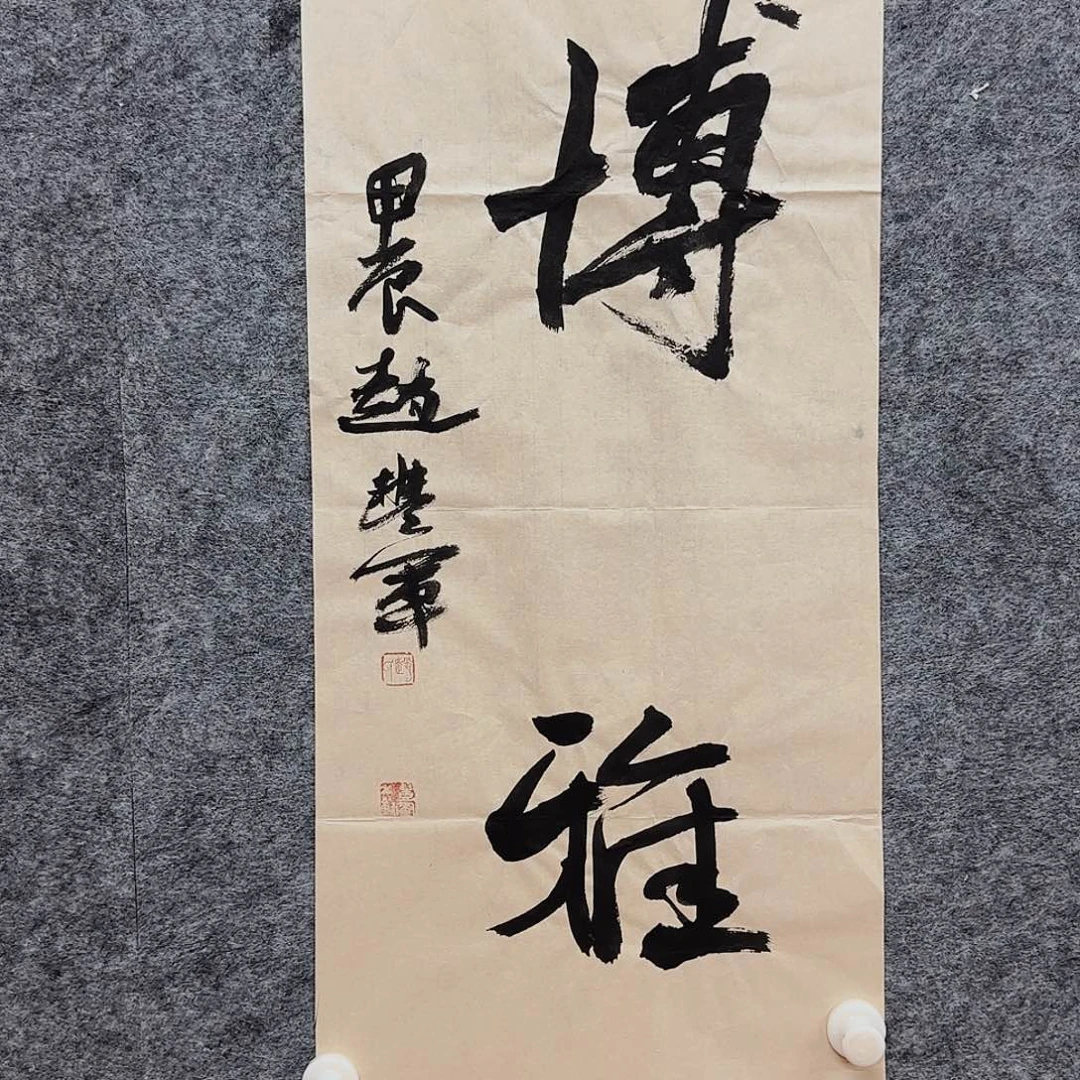 博雅
甲辰趙軍